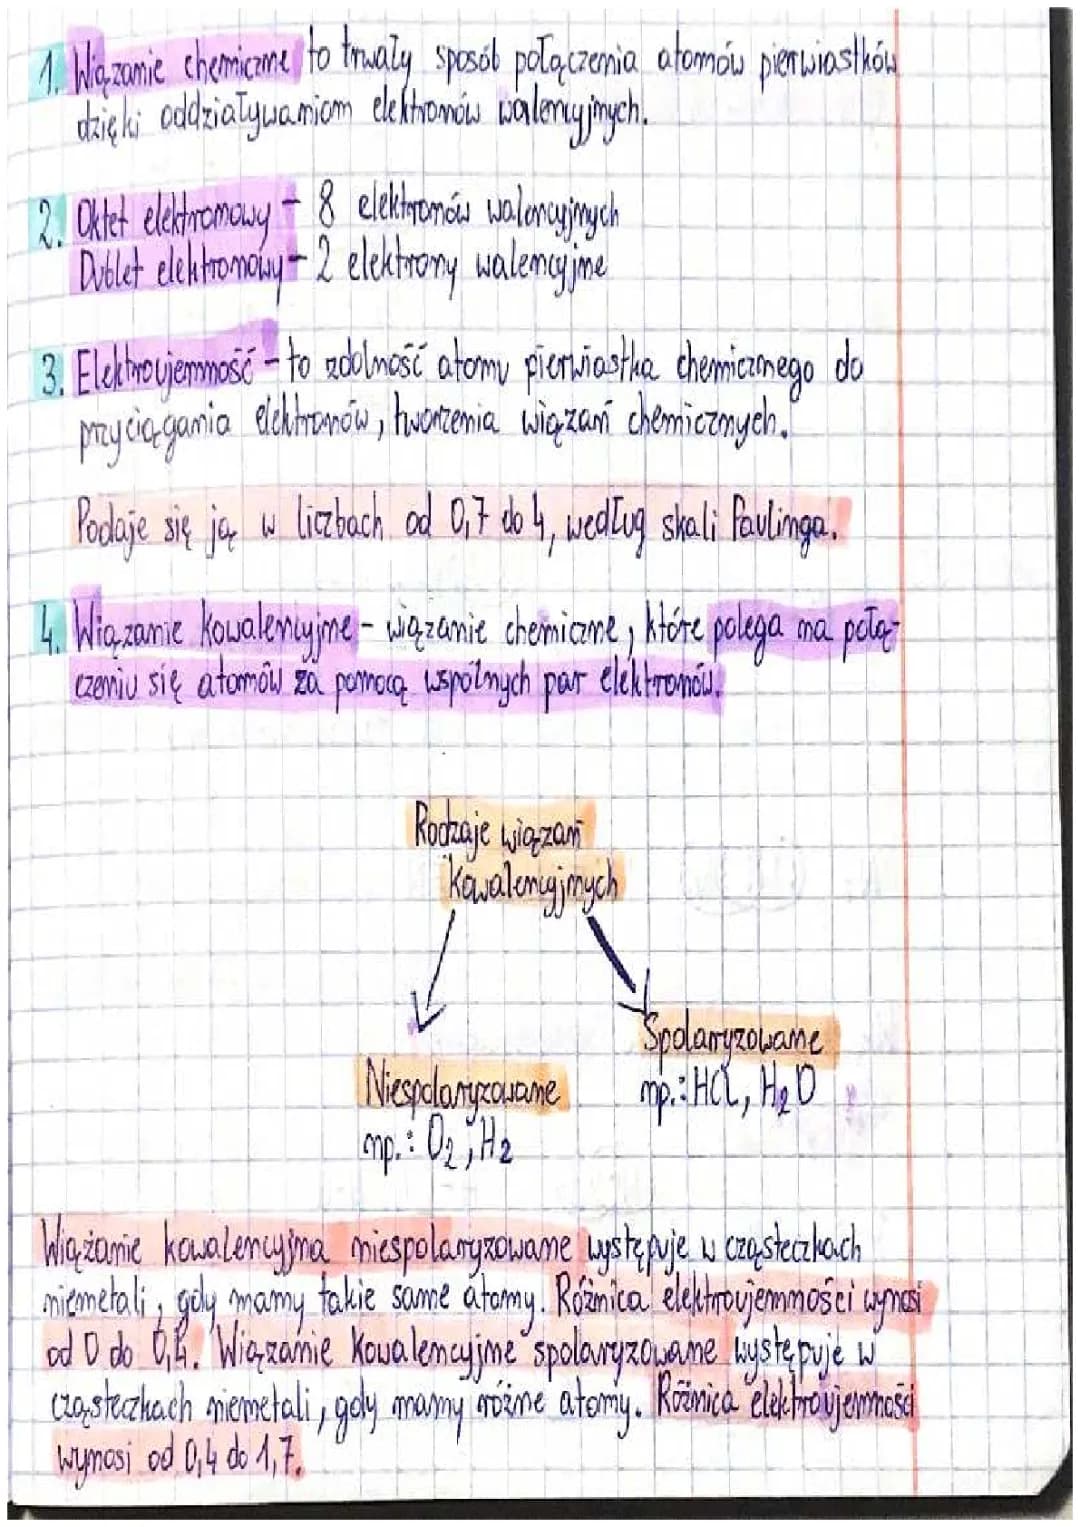 1. Wiązanie chemiczne to trwały sposób połączenia atomów pierwiastków
dzięki oddziaływaniom elektronów walencyjnych.
2. Oktet elektronowy - 8 elektronów walencyjnych
Dublet elektronowy - 2 elektrony walencyjne
3. Elektroujemność - to zdolność atomu pierwiastka chemicznego do
przyciągania elektronów, tworzenia wiązań chemicznych.
Podaje się ją w liczbach od 0,7 do 4, według skali Paulinga.
4. Wiązanie kowalencyjne - wiązanie chemiczne, które polega na połą-
czeniu się atomów za pomocą wspólnych par elektronów.
Rodzaje wiązań
kowalencyjnych
Spolaryzowane
np.: HCl, H₂O
Niespolaryzowane
np.: O₂, H₂
Wiążanie kowalencyjna niespolaryzowane występuje w cząsteczkach
niemetali, gdy mamy takie same atomy. Różnica elektroujemności wynosi
od 0 do 0,4. Wiązanie kowalencyjne spolaryzowane występuje w
cząsteczkach niemetali, gdy mamy różne atomy. Różnica elektroujemności
wynosi od 0,4 do 1,7.